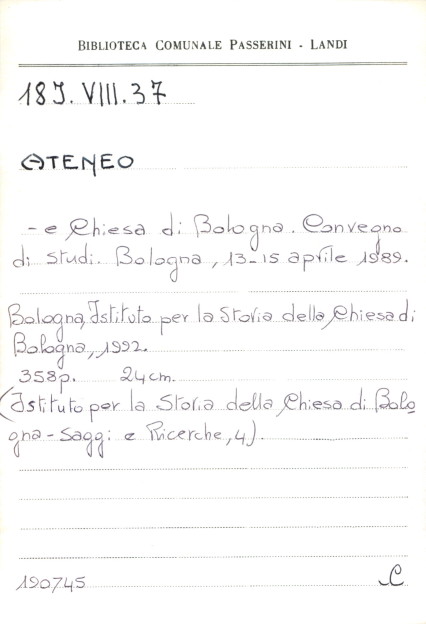 BIBLIOTECA COMUNALE PASSERINI - LANDI
18J.VIII.37
ATENEO
- e Chiesa di Bologna. Convegno
di studi. Bologna, 13-15 aprile 1989.
Bologna, Istituto per la Storia della Chiesa di
Bologna, 1992.
358p. 24cm.
(Istituto per la Storia della Chiesa di Bolo
gna - Saggi e Ricerche, 4).
190745 C